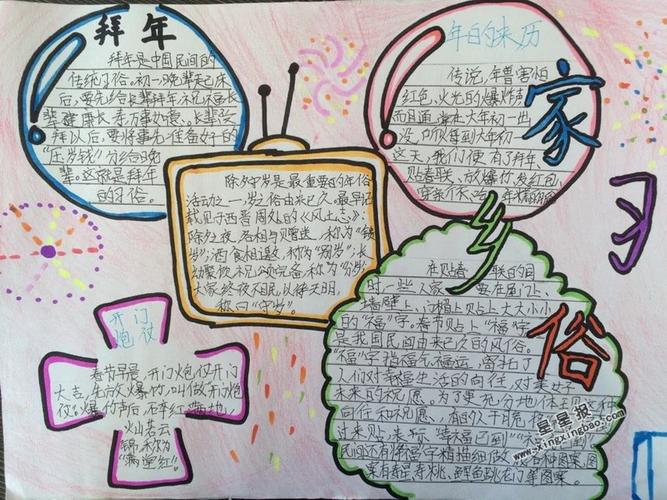 拜年
拜年是中国民间的
传统习俗。初一晚辈起床
后,要先给长辈拜年,祝愿长
辈健康长寿万事如意。长辈受
拜以后,要将事先准备好的
“压岁钱”分给晚
辈。这就是拜年
的习俗。
年的来历
传说,年兽害怕
红色,火光的爆炸声
而且通常在大年初一出
没,所以每到大年初一
这天,我们便有了拜年
贴春联、放爆竹、发红包、
家
乡
习
俗
除夕守岁是最重要的年俗
活动之一,守岁之俗由来已久。最早记
载见于西晋周处的《风土志》:
除夕之夜,各相与赠送,称为“馈
岁”;酒食相邀,称为“别岁”;长
幼聚饮,祝颂完备,称为“分岁”;
大家终夜不眠,以待天明,
称曰“守岁”。
开门
炮仗
春节早晨,开门炮仗开门
大吉,先放爆竹,叫做开门炮
仗。爆竹声后,碎红满地,
灿若云
锦,称为
“满堂红”。
在贴春联的同
时,一些人家要在屋门上、
墙壁上、门楣上贴上大大小小
的“福”字。春节贴上“福”字
是我国民间由来已久的风俗。
“福”字指福气、福运,寄托了
人们对幸福生活的向往,对美好
未来的祝愿。为了更充分地体现这种
向往和祝愿,有的人干脆将
过来贴,表示“幸福已到”“福气已到”
民间还有将福字精描细做成各种图案,图
案有寿星、寿桃、鲤鱼跳龙门等图案。
星星报
www.xingxingbao.com